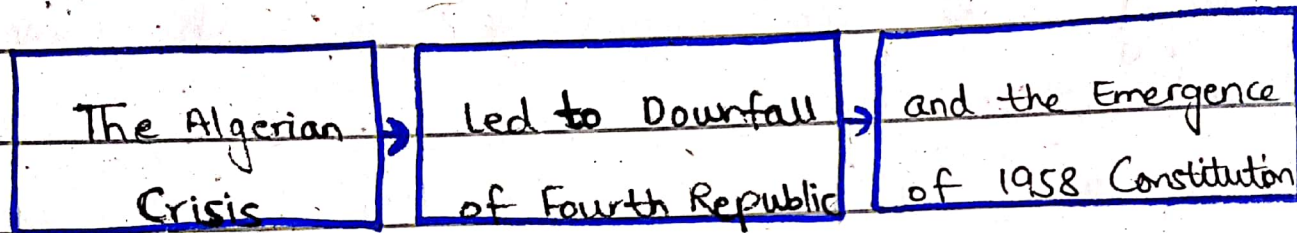 The Algerian
Crisis
led to Downfall
of Fourth Republic
and the Emergence
of 1958 Constitution